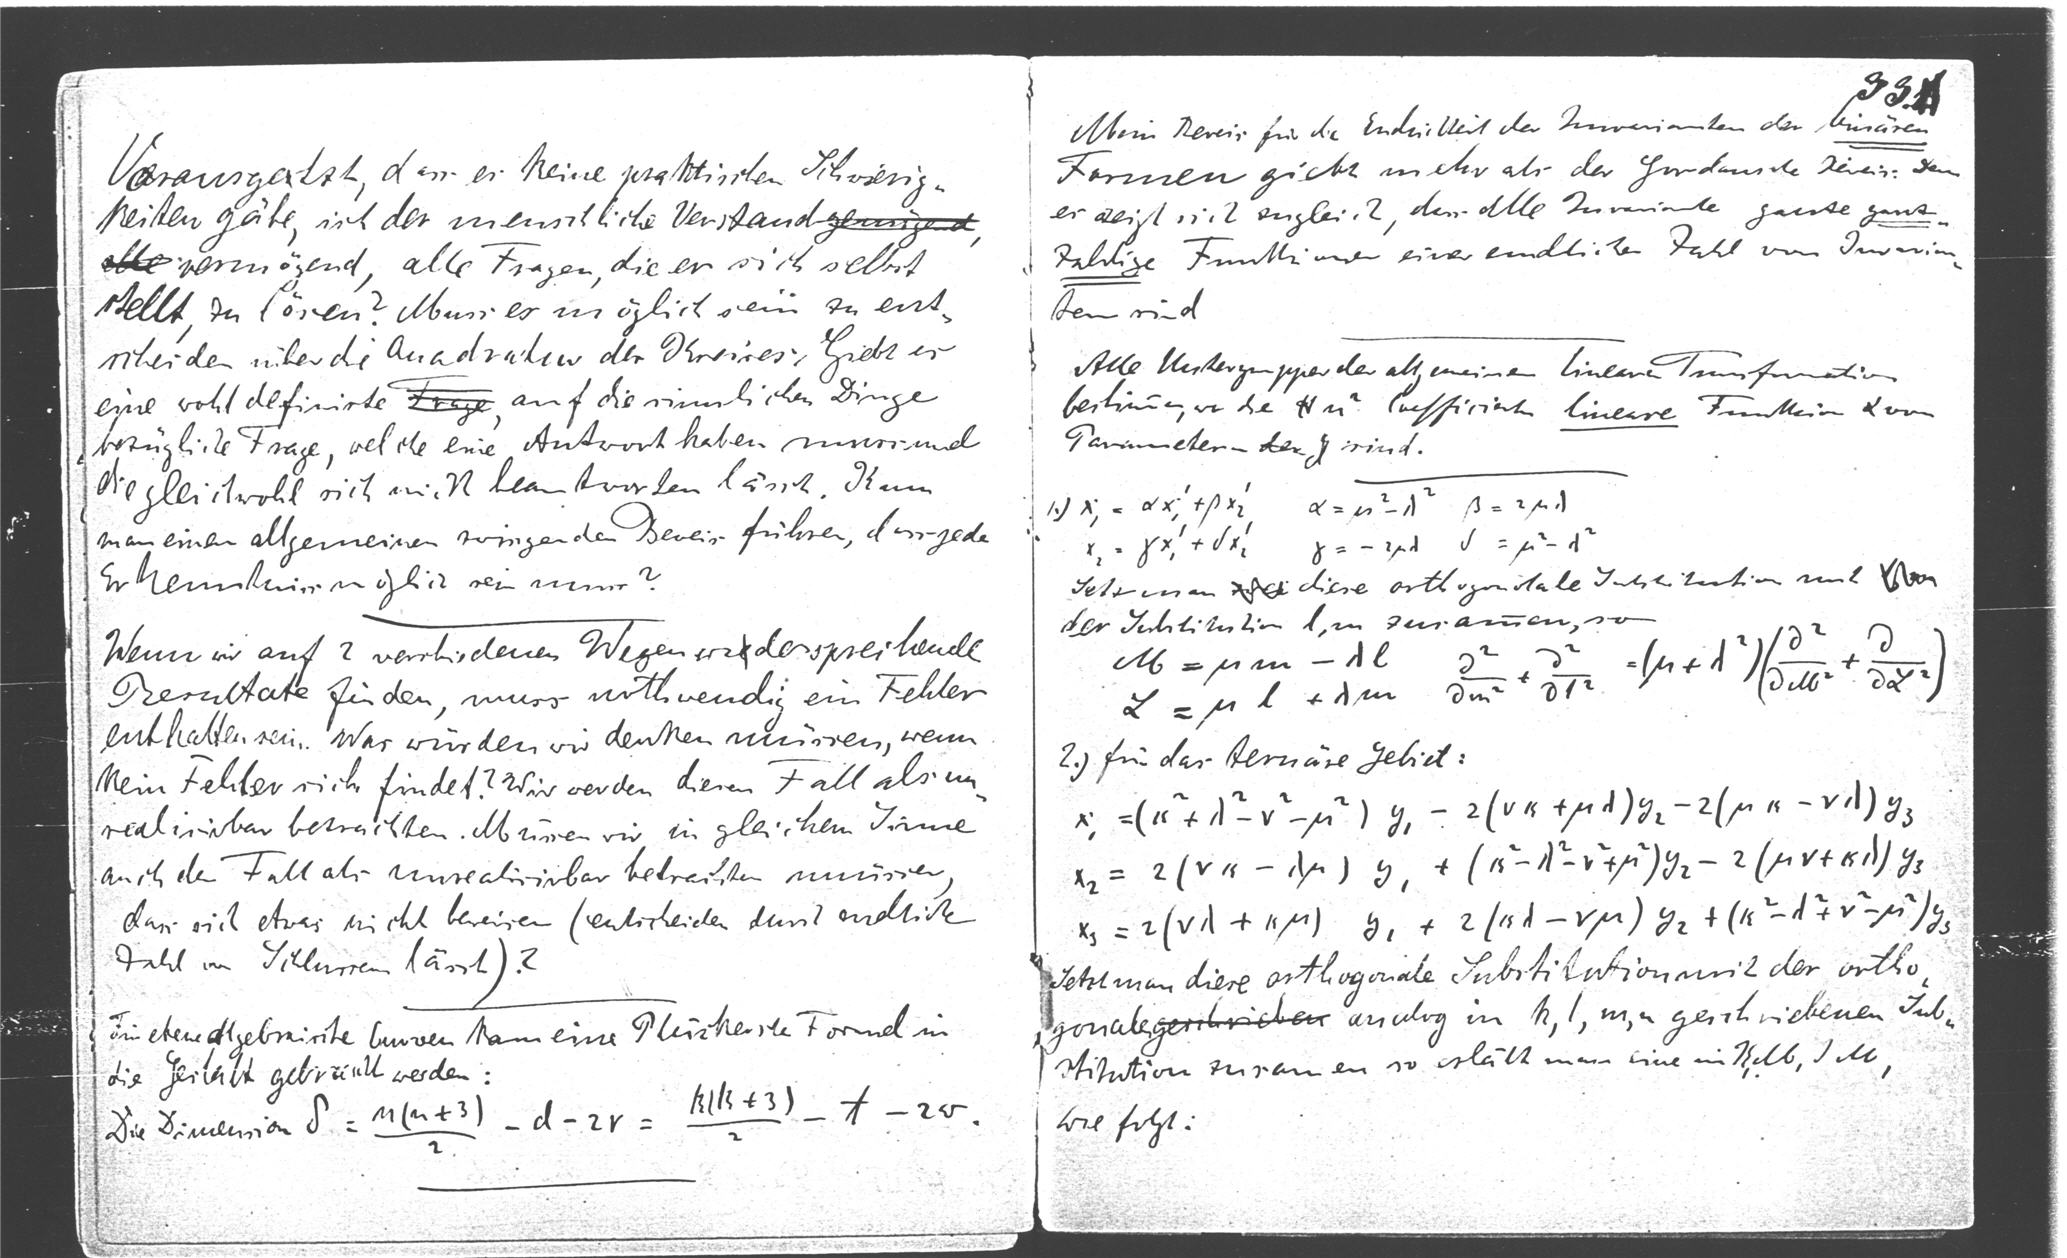 Vorausgesetzt, dass es keine praktischen Schwierig-
keiten gäbe, ist der menschliche Verstand genügend,
alle vermögend, alle Fragen, die er sich selbst
stellt, zu lösen? Muss es möglich sein zu ent-
scheiden über die Quadratur des Kreises? Giebt es
eine wohl definirte Frage, auf die sinnlichen Dinge
bezügliche Frage, welche eine Antwort haben muss und
die gleichwohl sich nicht beantworten lässt. Kann
man einen allgemeinen zwingenden Beweis führen, dass jede
Erkenntniss möglich sein muss?
Wenn wir auf 2 verschiedenen Wegen widersprechende
Resultate finden, muss nothwendig ein Fehler
enthalten sein. Was würden wir denken müssen, wenn
kein Fehler sich findet? Wir werden diesen Fall als un-
realisirbar betrachten. Müssen wir in gleichem Sinne
auch den Fall als unrealisirbar betrachten müssen,
dass sich etwas nicht beweisen (entscheiden durch endliche
Zahl von Schlüssen lässt).?
Für ebene algebraische Curven kann eine Plückersche Formel in
die Gestalt gebracht werden:
Die Dimension δ = n(n+3)/2 - d - 2r = k(k+3)/2 - t - 2w.
33.
Mein Beweis für die Endlichkeit der Invarianten der binären
Formen giebt mehr als der Gordansche Beweis. Denn
es zeigt sich zugleich, dass alle Invariante ganze ganz-
zahlige Funktionen einer endlichen Zahl von Invarian-
ten sind
Alle Untergruppen der allgemeinen linearen Transformation
bestimmen, wo die n² Coefficienten lineare Funktion von
Parametern sind.
1.) x₁ = αx₁' + βx₂' α = μ²-λ² β = 2μλ
x₂ = γx₁' + δx₂' γ = -2μλ δ = μ²-λ²
Setzt man diese orthogonale Substitution mit
der Substitution l, m zusammen, so
M = μm - λl ∂²/∂m² + ∂²/∂l² = (μ+λ²)(∂²/∂M² + ∂/∂L²)
L = μl + λm
2.) für das ternäre Gebiet:
x₁ = (κ²+λ²-ν²-μ²) y₁ - 2(νκ+μλ)y₂ - 2(μκ-νλ)y₃
x₂ = 2(νκ-λμ) y₁ + (κ²-λ²-ν²+μ²)y₂ - 2(μν+κλ)y₃
x₃ = 2(νλ+κμ) y₁ + 2(κλ-νμ)y₂ + (κ²-λ²+ν²-μ²)y₃
Setzt man diese orthogonale Substitution mit der ortho-
gonale geschrieben analog in k, l, m, n geschriebenen Sub-
stitution zusammen so erhält man eine in
wie folgt: